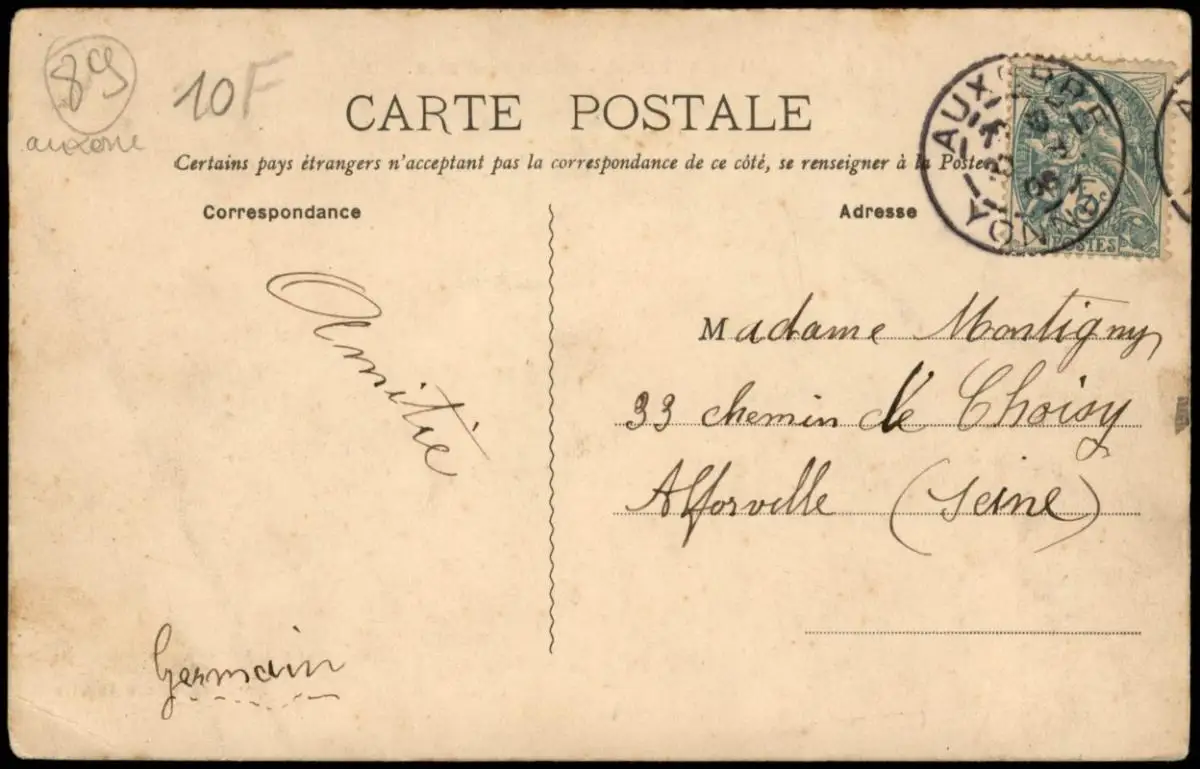 89
auxerre
10F
CARTE POSTALE
Certains pays étrangers n'acceptant pas la correspondance de ce côté, se renseigner à la Poste.
Correspondance
Adresse
AUXERRE
YONNE
POSTES
Amitié
Madame Montigny
33 chemin de Choisy
Alforville (Seine)
Germain